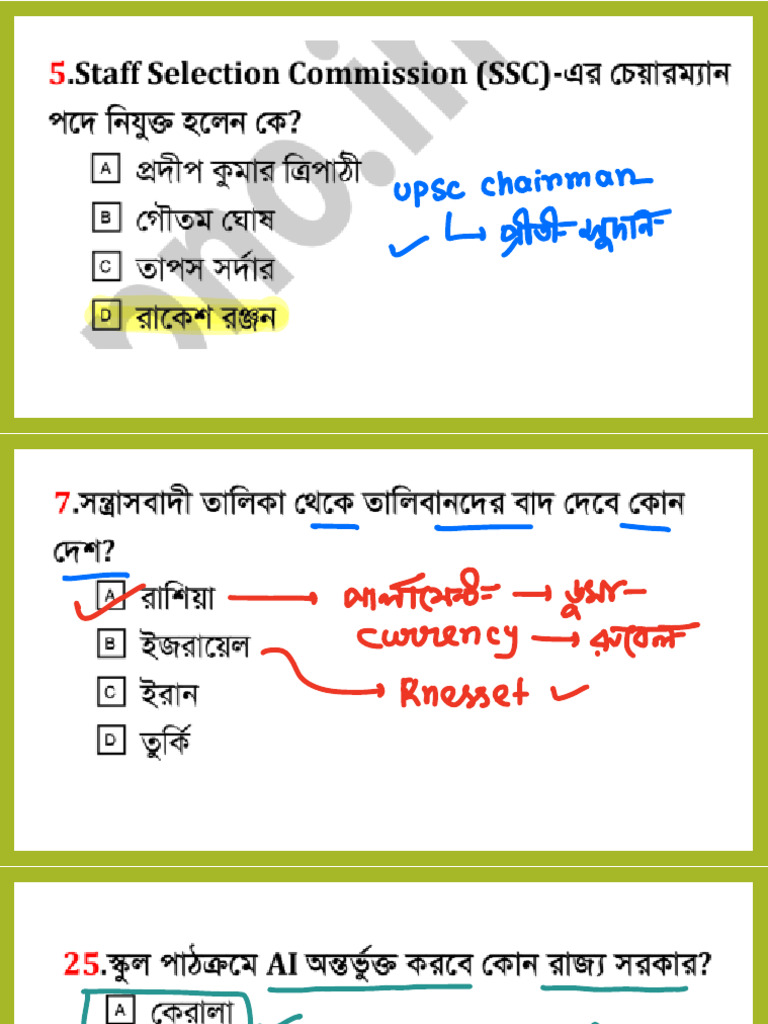 5.Staff Selection Commission (SSC)-এর চেয়ারম্যান
পদে নিযুক্ত হলেন কে?
A প্রদীপ কুমার ত্রিপাঠী
B গৌতম ঘোষ
C তাপস সর্দার
D রাকেশ রঞ্জন
UPSC chairman
প্রীতী সুদান
7.সন্ত্রাসবাদী তালিকা থেকে তালিবানদের বাদ দেবে কোন
দেশ?
A রাশিয়া
B ইজরায়েল
C ইরান
D তুর্কি
পার্লামেন্ট → ডুমা
currency → রুবেল
Knesset
25.স্কুল পাঠক্রমে AI অন্তর্ভুক্ত করবে কোন রাজ্য সরকার?
A কেরালা